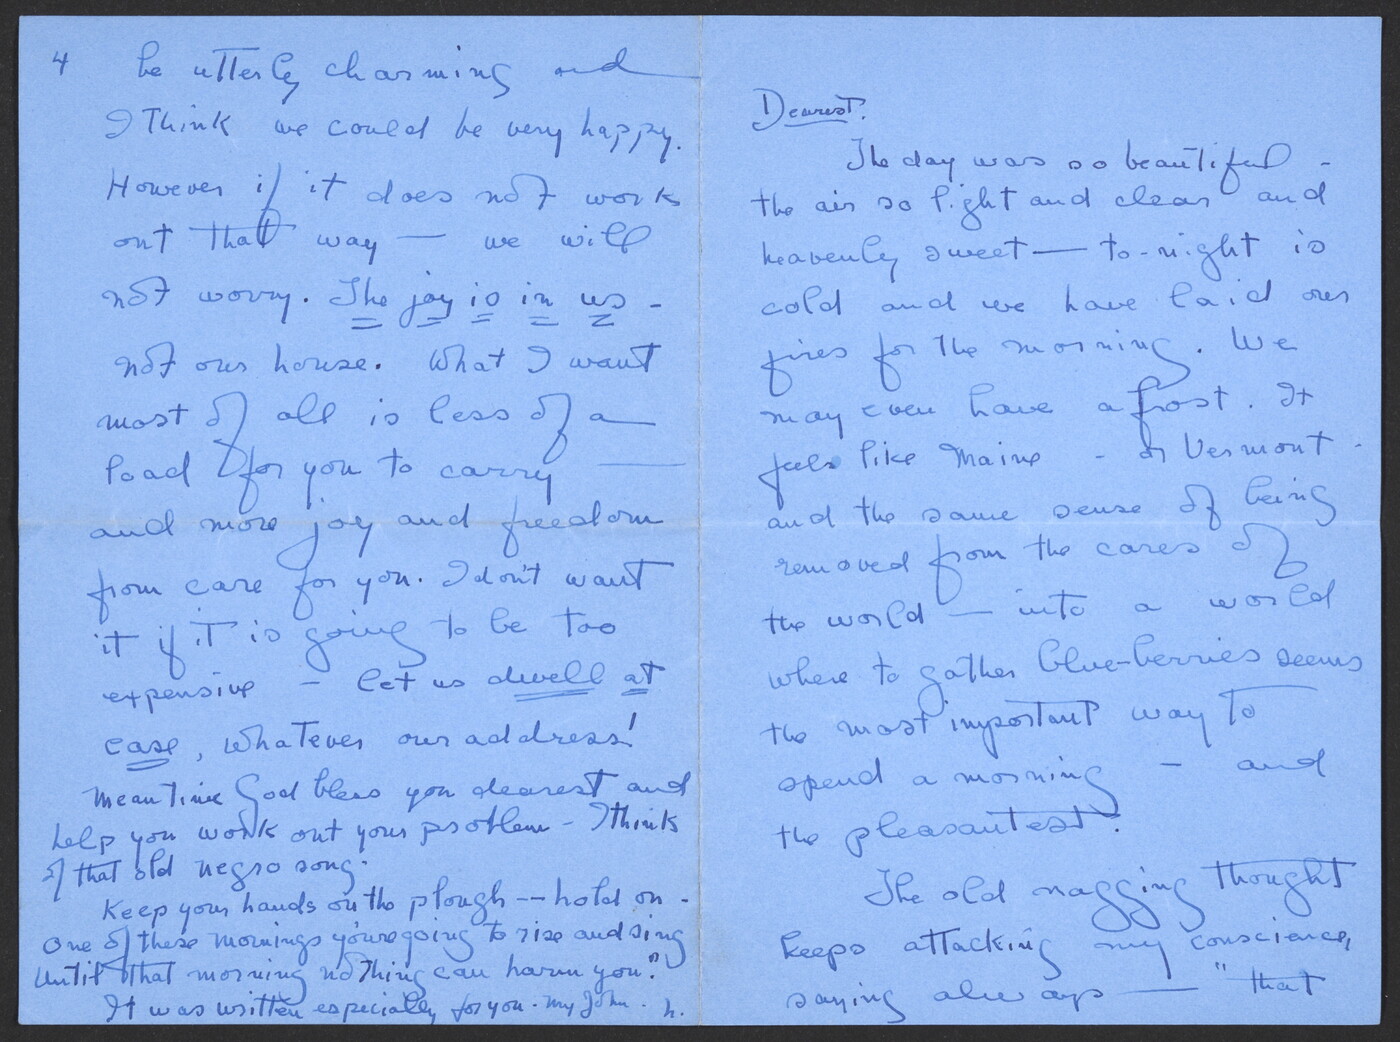 4 be utterly charming and
I think we could be very happy.
However if it does not work
out that way — we will
not worry. The joy is in us -
not our house. What I want
most of all is less of a
load for you to carry —
and more joy and freedom
from care for you. I don't want
it if it is going to be too
expensive - let us dwell at
ease, whatever our address!
Meantime God bless you dearest and
help you work out your problem - I think
of that old negro song.
Keep your hands on the plough -- hold on -
One of these mornings you're going to rise and sing
Until that morning nothing can harm you."
It was written especially for you - my John. h.
Dearest.
The day was so beautiful -
the air so light and clear and
heavenly sweet — to-night is
cold and we have laid our
fires for the morning. We
may even have a frost. It
feels like Maine - or Vermont -
and the same sense of being
removed from the cares of
the world — into a world
where to gather blue-berries seems
the most important way to
spend a morning - and
the pleasantest.
The old nagging thought
keeps attacking my conscience,
saying always — "that